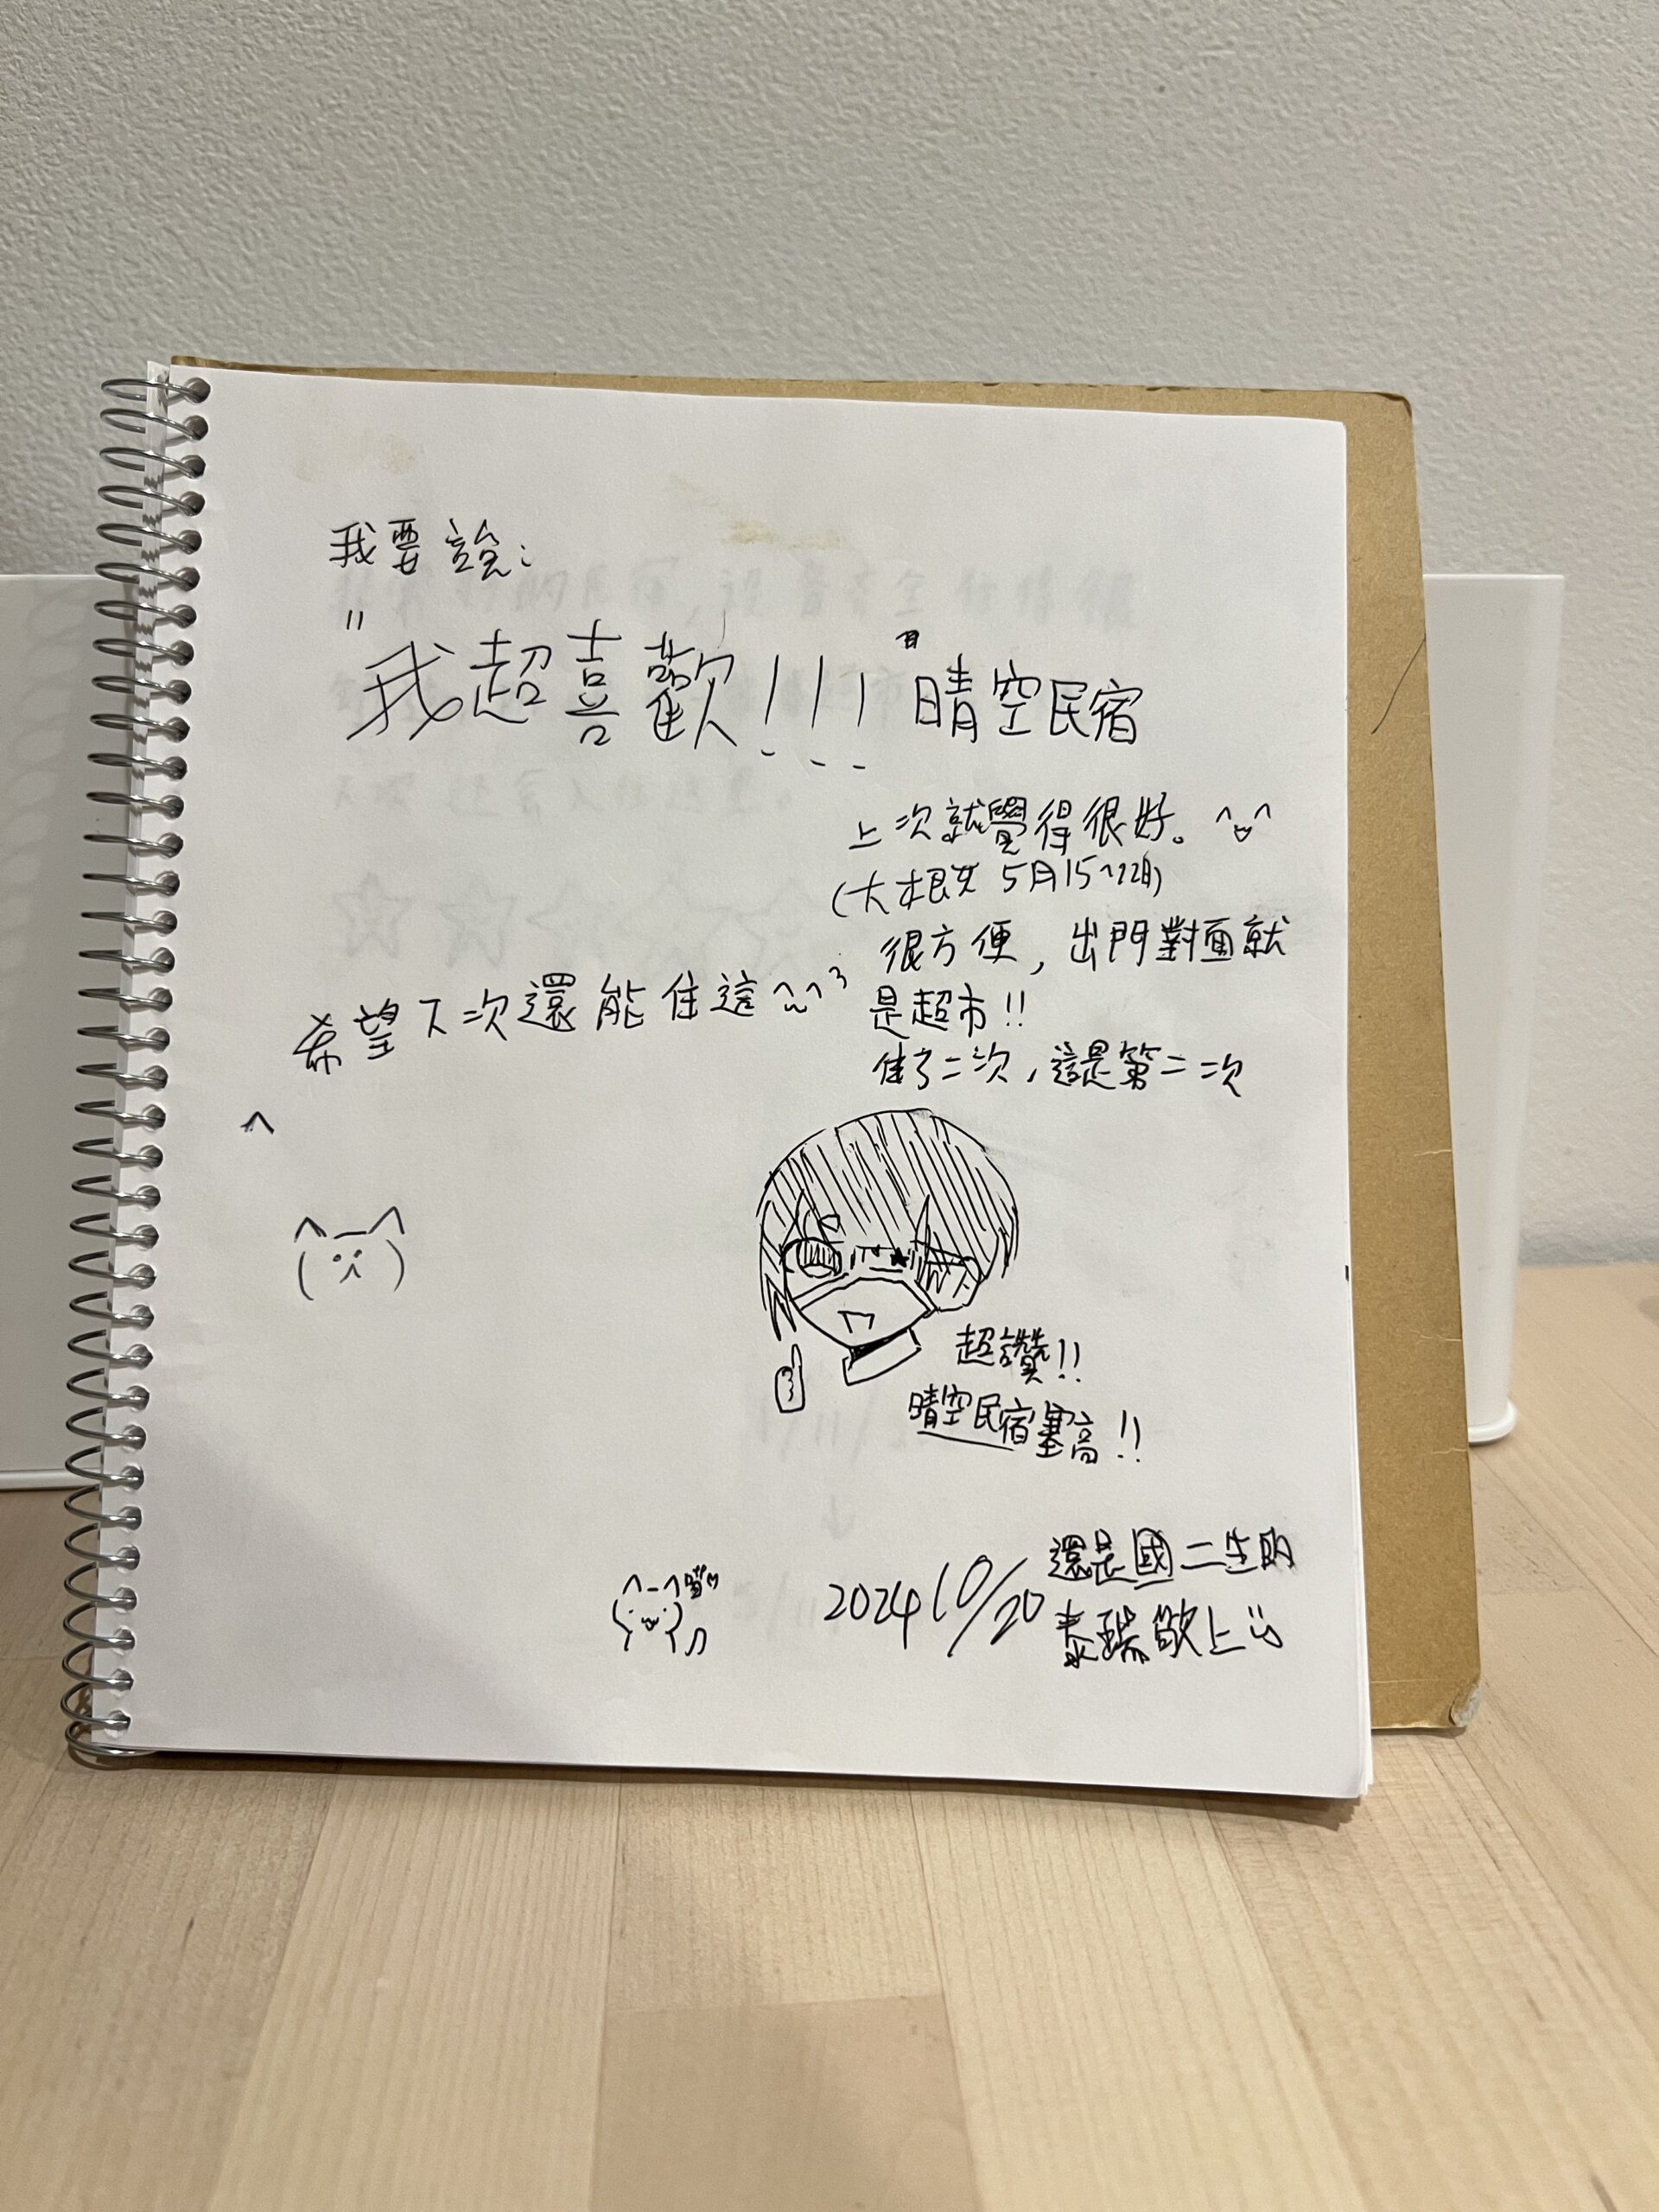 我要說:
"我超喜歡!!!"晴空民宿
上次就覺得很好。^ω^
(大根 5月15~
很方便,出門對面就
是超市!!
住了二次,這是第二次
希望下次還能住這^~^
超讚!!
晴空民宿塞高!!
2024 10/20
還是國二生的
泰瑞敬上